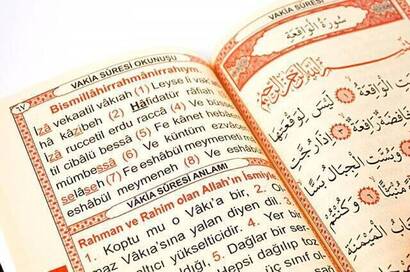 ٦٧
VAKİA SÛRESİ OKUNUŞU
Bismillâhirrahmânirrahıym.
İzâ vekaatil vâkıah (1) Leyse li vak
hâ kâzibeh (2) Hâfidatür râfiah
İzâ ruccetil erdu raccâ (4) Ve büs
til cibâlü bessâ (5) Fe kânet hebâ
mümbessâ (6) Ve küntüm ezvâc
selâseh (7) Fe eshâbül meymeneh
eshâbül meymeneh (8) Ve eshâ
VAKİA SÛRESİ ANLAMI
Rahman ve Rahim olan Allah'ın İsmiyle
1. Koptu mu o Vâkı'a bir, 2. O
maz Vâkıa'sına yalan diyen dil.
altıcı yükselticidir. 4. Yer bir
ıldı. 5. Dağlar bir ser
hepsi dağılıp toz
VAKİA SÛRESİ
سُورَةُ الْوَاقِعَةِ
إِذَا وَقَعَتِ الْوَاقِعَةُ ۝ لَيْسَ لِوَقْعَتِهَا
خَافِضَةٌ رَافِعَةٌ ۝ إِذَا رُجَّتِ
وَبُسَّتِ الْجِبَالُ بَسًّا
مُنْبَثًّا ۝ وَكُنْتُمْ